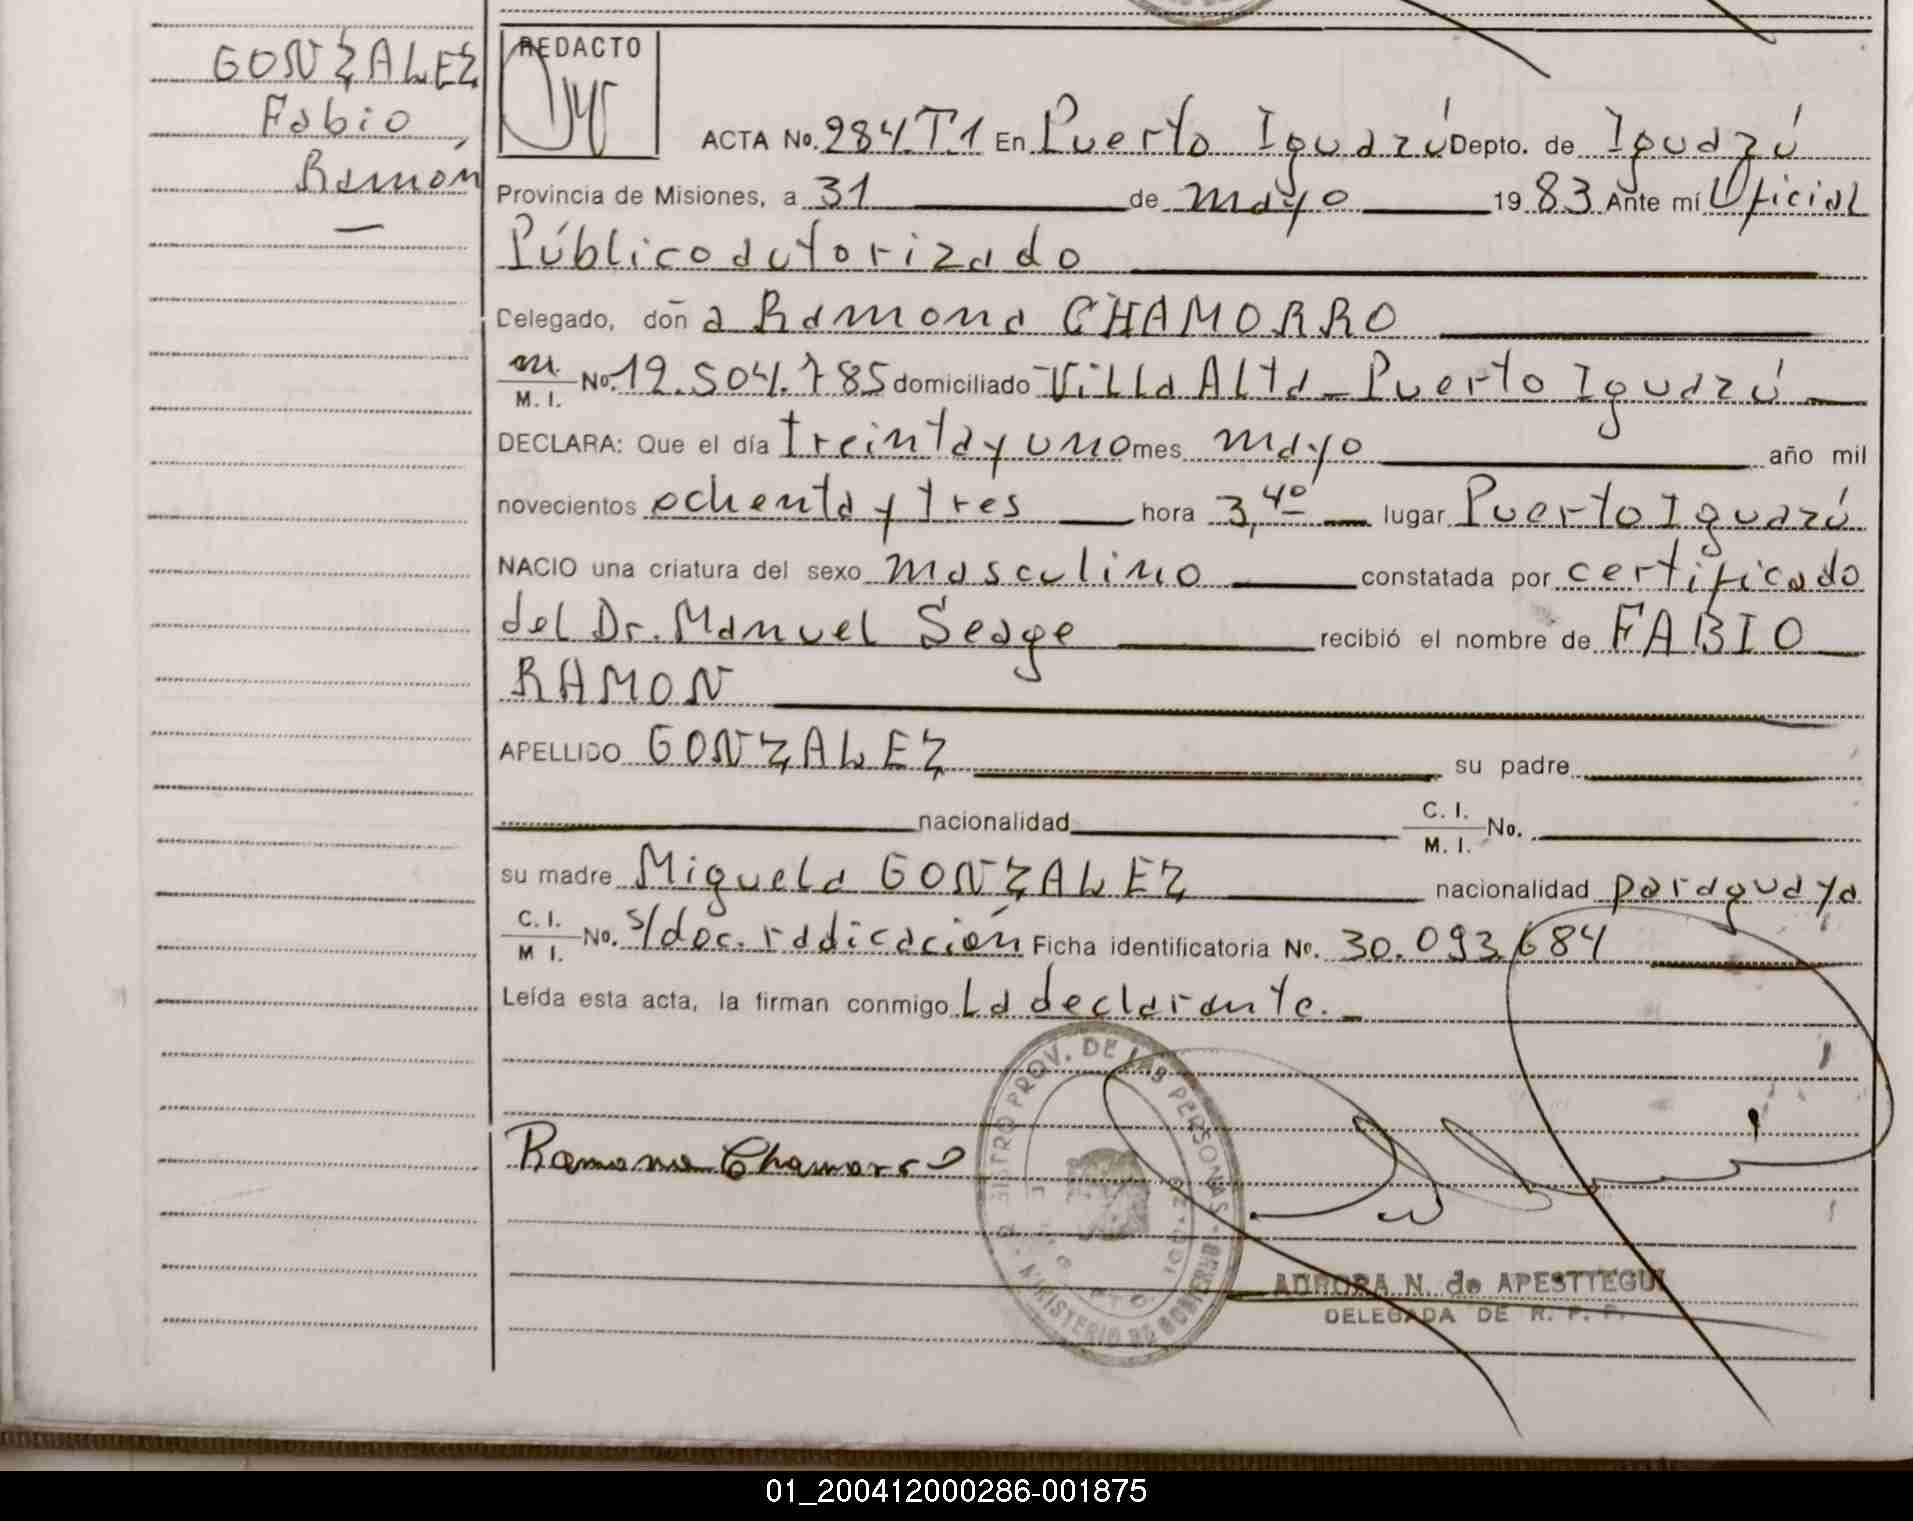 GONZALEZ
Fabio
Ramón
—
REDACTO
ACTA No. 284.T.1 En Puerto Iguazú Depto. de Iguazú
Provincia de Misiones, a 31 de mayo 1983 Ante mí Oficial
Público autorizado
Delegado, doña Ramona CHAMORRO
M. I. No. 12.504.785 domiciliado Villa Alta - Puerto Iguazú
DECLARA: Que el día treinta y uno mes mayo año mil
novecientos ochenta y tres hora 3,40 lugar Puerto Iguazú
NACIO una criatura del sexo masculino constatada por certificado
del Dr. Manuel Seage recibió el nombre de FABIO
RAMON
APELLIDO GONZALEZ su padre
nacionalidad C. I. / M. I. No.
su madre Miguela GONZALEZ nacionalidad paraguaya
C. I. / M I. No. s/doc. radicación Ficha identificatoria No. 30.093.684
Leída esta acta, la firman conmigo La declarante.
Ramona Chamorro
PROV. DE LAS PERSONAS
MINISTERIO DE GOBIERNO
AURORA N. de APESTTEGUI
DELEGADA DE R. P. P.
01_200412000286-001875